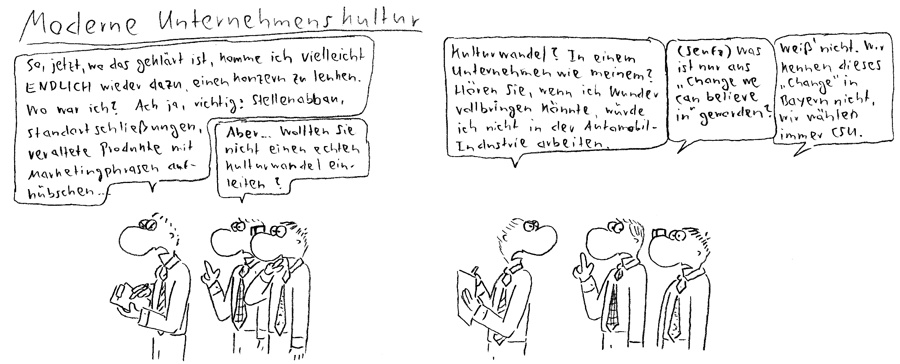 Moderne Unternehmenskultur
So, jetzt, wo das geklärt ist, komme ich vielleicht
ENDLICH wieder dazu, einen Konzern zu lenken.
Wo war ich? Ach ja, richtig: Stellenabbau,
Standortschließungen,
veraltete Produkte mit
Marketingphrasen auf-
hübschen...
Aber... wollten Sie
nicht einen echten
Kulturwandel ein-
leiten?
Kulturwandel? In einem
Unternehmen wie meinem?
Hören Sie, wenn ich Wunder
vollbringen könnte, würde
ich nicht in der Automobil-
Industrie arbeiten.
(seufz) Was
ist nur aus
„Change we
can believe
in" geworden?
Weiß' nicht. Wir
kennen dieses
„Change" in
Bayern nicht,
wir wählen
immer CSU.